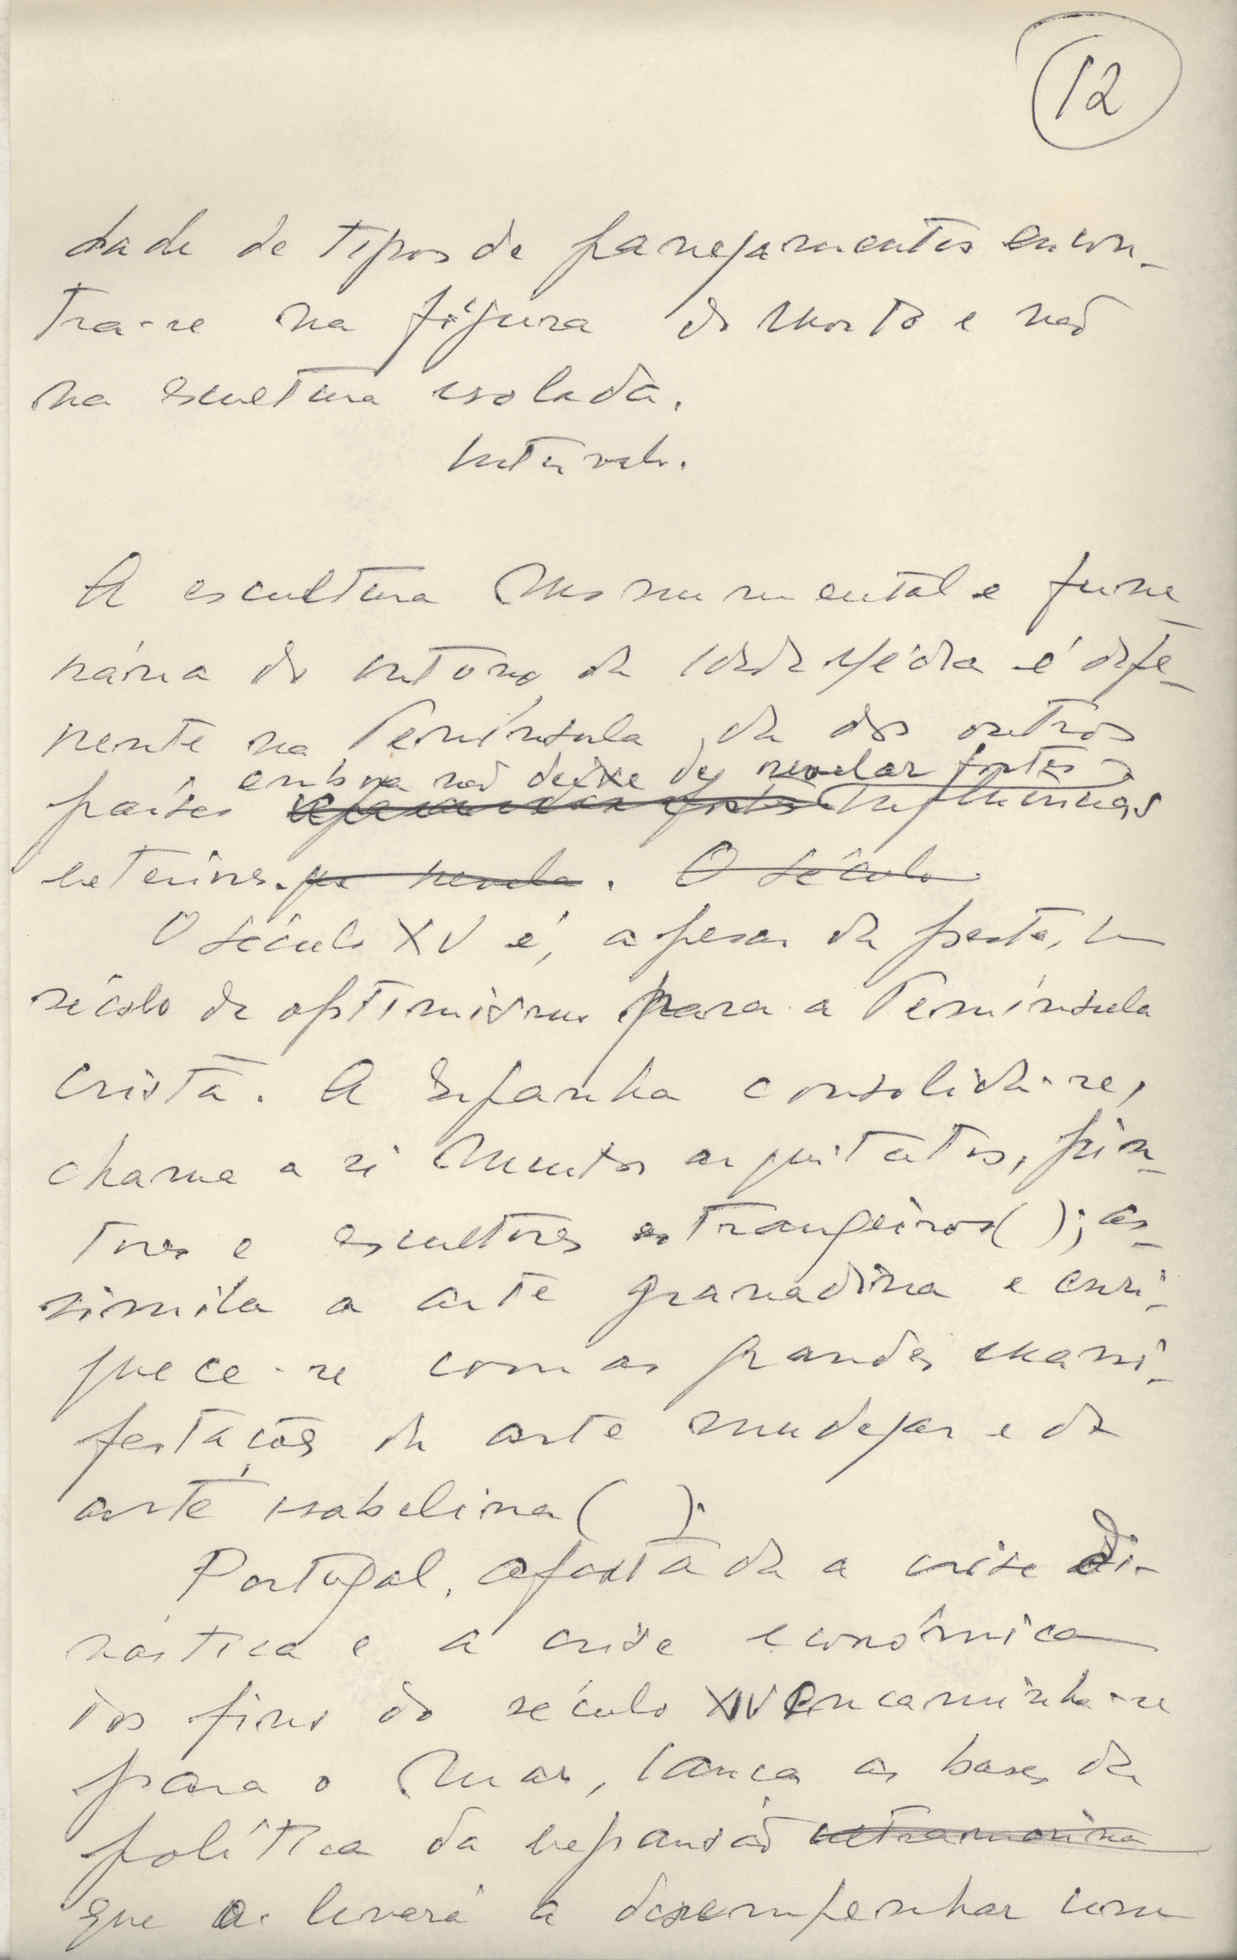 12
dade de tipos de panejamentos encon-
tra-se na figura do morto e não
na escultura isolada.
Intervalo.
A escultura monumental e fune
rária do outono da Idade Média é dife-
rente na Península, da dos outros
embora não deixe de revelar fortes
países influências
exteriores. que revela. O século
O século XV é, apesar da peste, um
século de optimismo para a Península
cristã. A Espanha consolida-se,
chama a si muitos arquitectos, pin-
tores e escultores estrangeiros ( ); as-
simila a arte granadina e enri-
quece-se com as grandes mani-
festações da arte mudejar e da
arte isabelina ( ).
Portugal, afastada a crise di-
nástica e a crise económica
dos fins do século XIV encaminha-se
para o mar, lança as bases da
política da expansão ultramarina
que o levará a desempenhar com